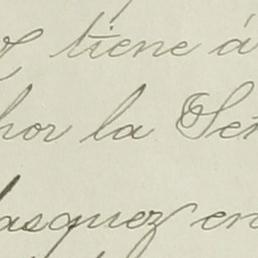 y tiene á
por la Señ
lasquez en